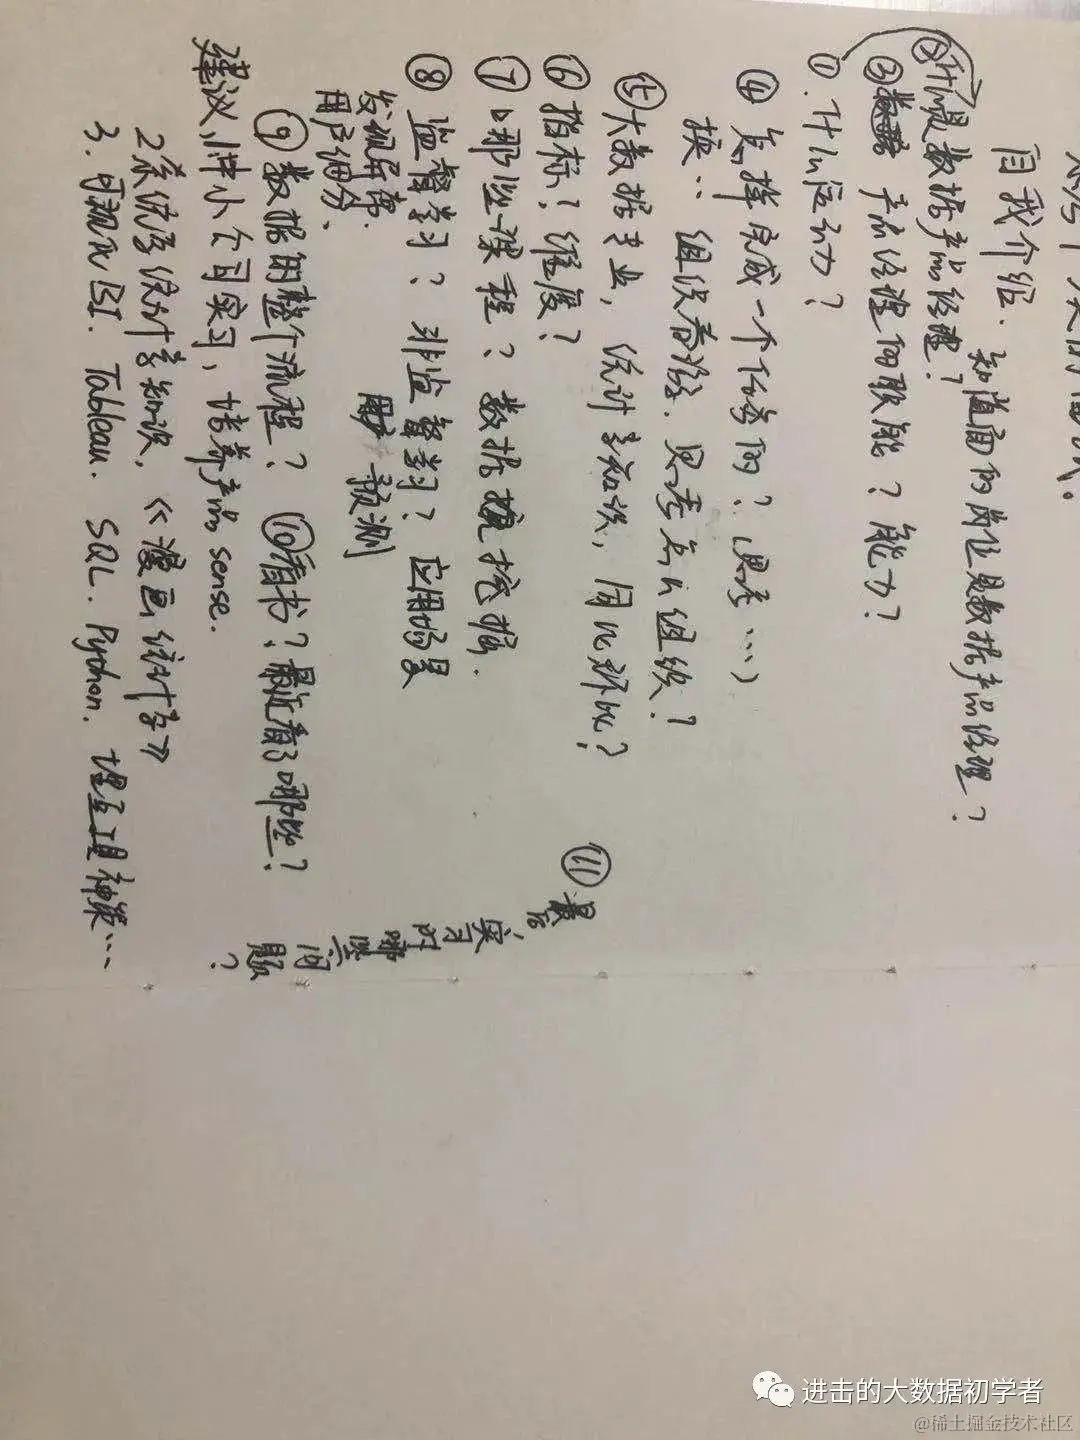 自我介绍. 知道面的岗位是数据产品经理?
②什么是数据产品经理?
③数据 产品经理的职能?能力?
①.什么运动力?
④ 怎样完成一个任务的?(思考…)
换: 组织看法. 思考怎么组织?
⑤大数据专业,统计学知识,同比环比?
⑥指标?维度?
⑦哪些课程?数据挖掘.
⑧监督学习?非监督学习?应用场景
发现异常. 预测
用户细分、
⑨数据的整个流程?⑩看书?最近看了哪些?
⑪最后、实习时哪些问题?
建议,1.中小公司实习,培养产品sense.
2.系统学统计学知识,《漫画统计学》
3.可视化BI. Tableau. SQL. Python. 埋点工具神策…
进击的大数据初学者
@稀土掘金技术社区